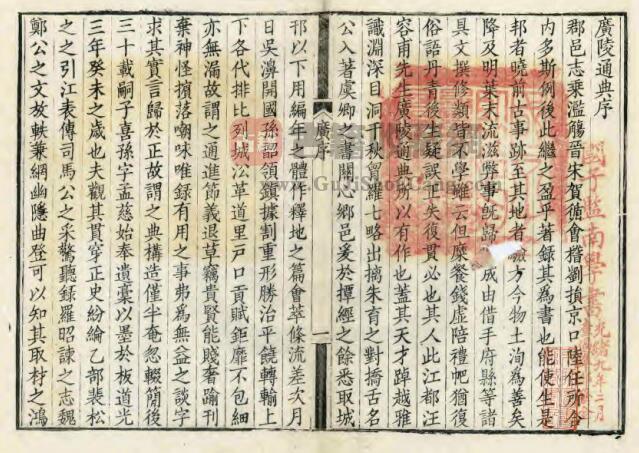 廣陵通典序
郡邑志乘濫觴晉宋賀循會稽劉損京口陸任所合
内多斯例後此繼之盈乎著錄其為書也能使生是
邦者曉前古事跡至其地者驗方今物土洵為善矣
降及明葉末流滋弊事旣歸成由借手府縣等諸
具文撰修類皆不學雖云但縻餐錢虛陪禮帊猶復
俗語丹青後生疑誤其失復貫必也其人此江都汪
容甫先生廣陵通典所以有作也蓋其天才踔越雅
識淵深目洞千秋胷羅七略出摛朱育之對撟舌名
公入著虞卿之書關心鄉邑爰於撢經之餘悉取城
廣序
一
邗以下用編年之體作釋地之篇會萃條流差次月
日吳濞開國孫韶領鎭據割重形勝治平饒轉輸上
下各代排比列城㳂革道里戸口貢賦鉅靡不包細
亦無漏故謂之通進節義退草竊貴賢能賤奢踰刊
棄神怪擯落嘲咏唯録有用之事弗為無益之談字
求其實言歸於正故謂之典構造僅半奄忽輟簡後
三十載嗣子喜孫字孟慈始奉遺稾以墨於板道光
三年癸未之歲也夫觀其貫穿正史紛綸乙部裴松
之之引江表傳司馬公之采驚聽録羅昭諫之志魏
鄭公之文放軼兼網幽隱曲登可以知其取材之鴻
國子監南學書
光緒九年二月
www.GujiShop.com